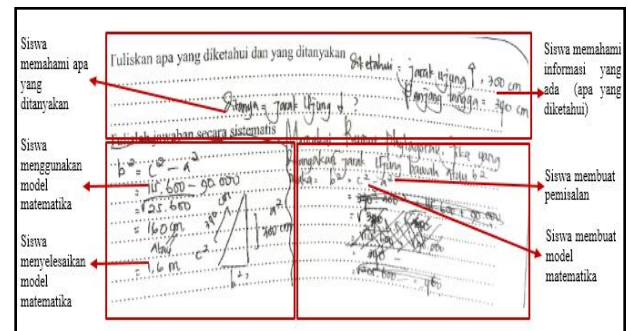 Siswa
memahami apa
yang
ditanyakan
Siswa
menggunakan
model
matematika
Siswa
menyelesaikan
model
matematika
Tuliskan apa yang diketahui dan yang ditanyakan
Diketahui = jarak ujung ↑ = 300 cm
Panjang tangga = 340 cm
Ditanya = jarak ujung ↓ ?
Tulislah jawaban secara sistematis
b² = c² - a²
= 115.600 - 90.000
= √25.600
= 160 cm
Atau
= 1,6 m
c²
a²
300 cm
b²
Rumus Phytagoras, jika yang
ditanyakan jarak ujung bawah atau b²
maka = b² = c² -
Siswa memahami
informasi yang
ada (apa yang
diketahui)
Siswa membuat
pemisalan
Siswa membuat
model
matematika